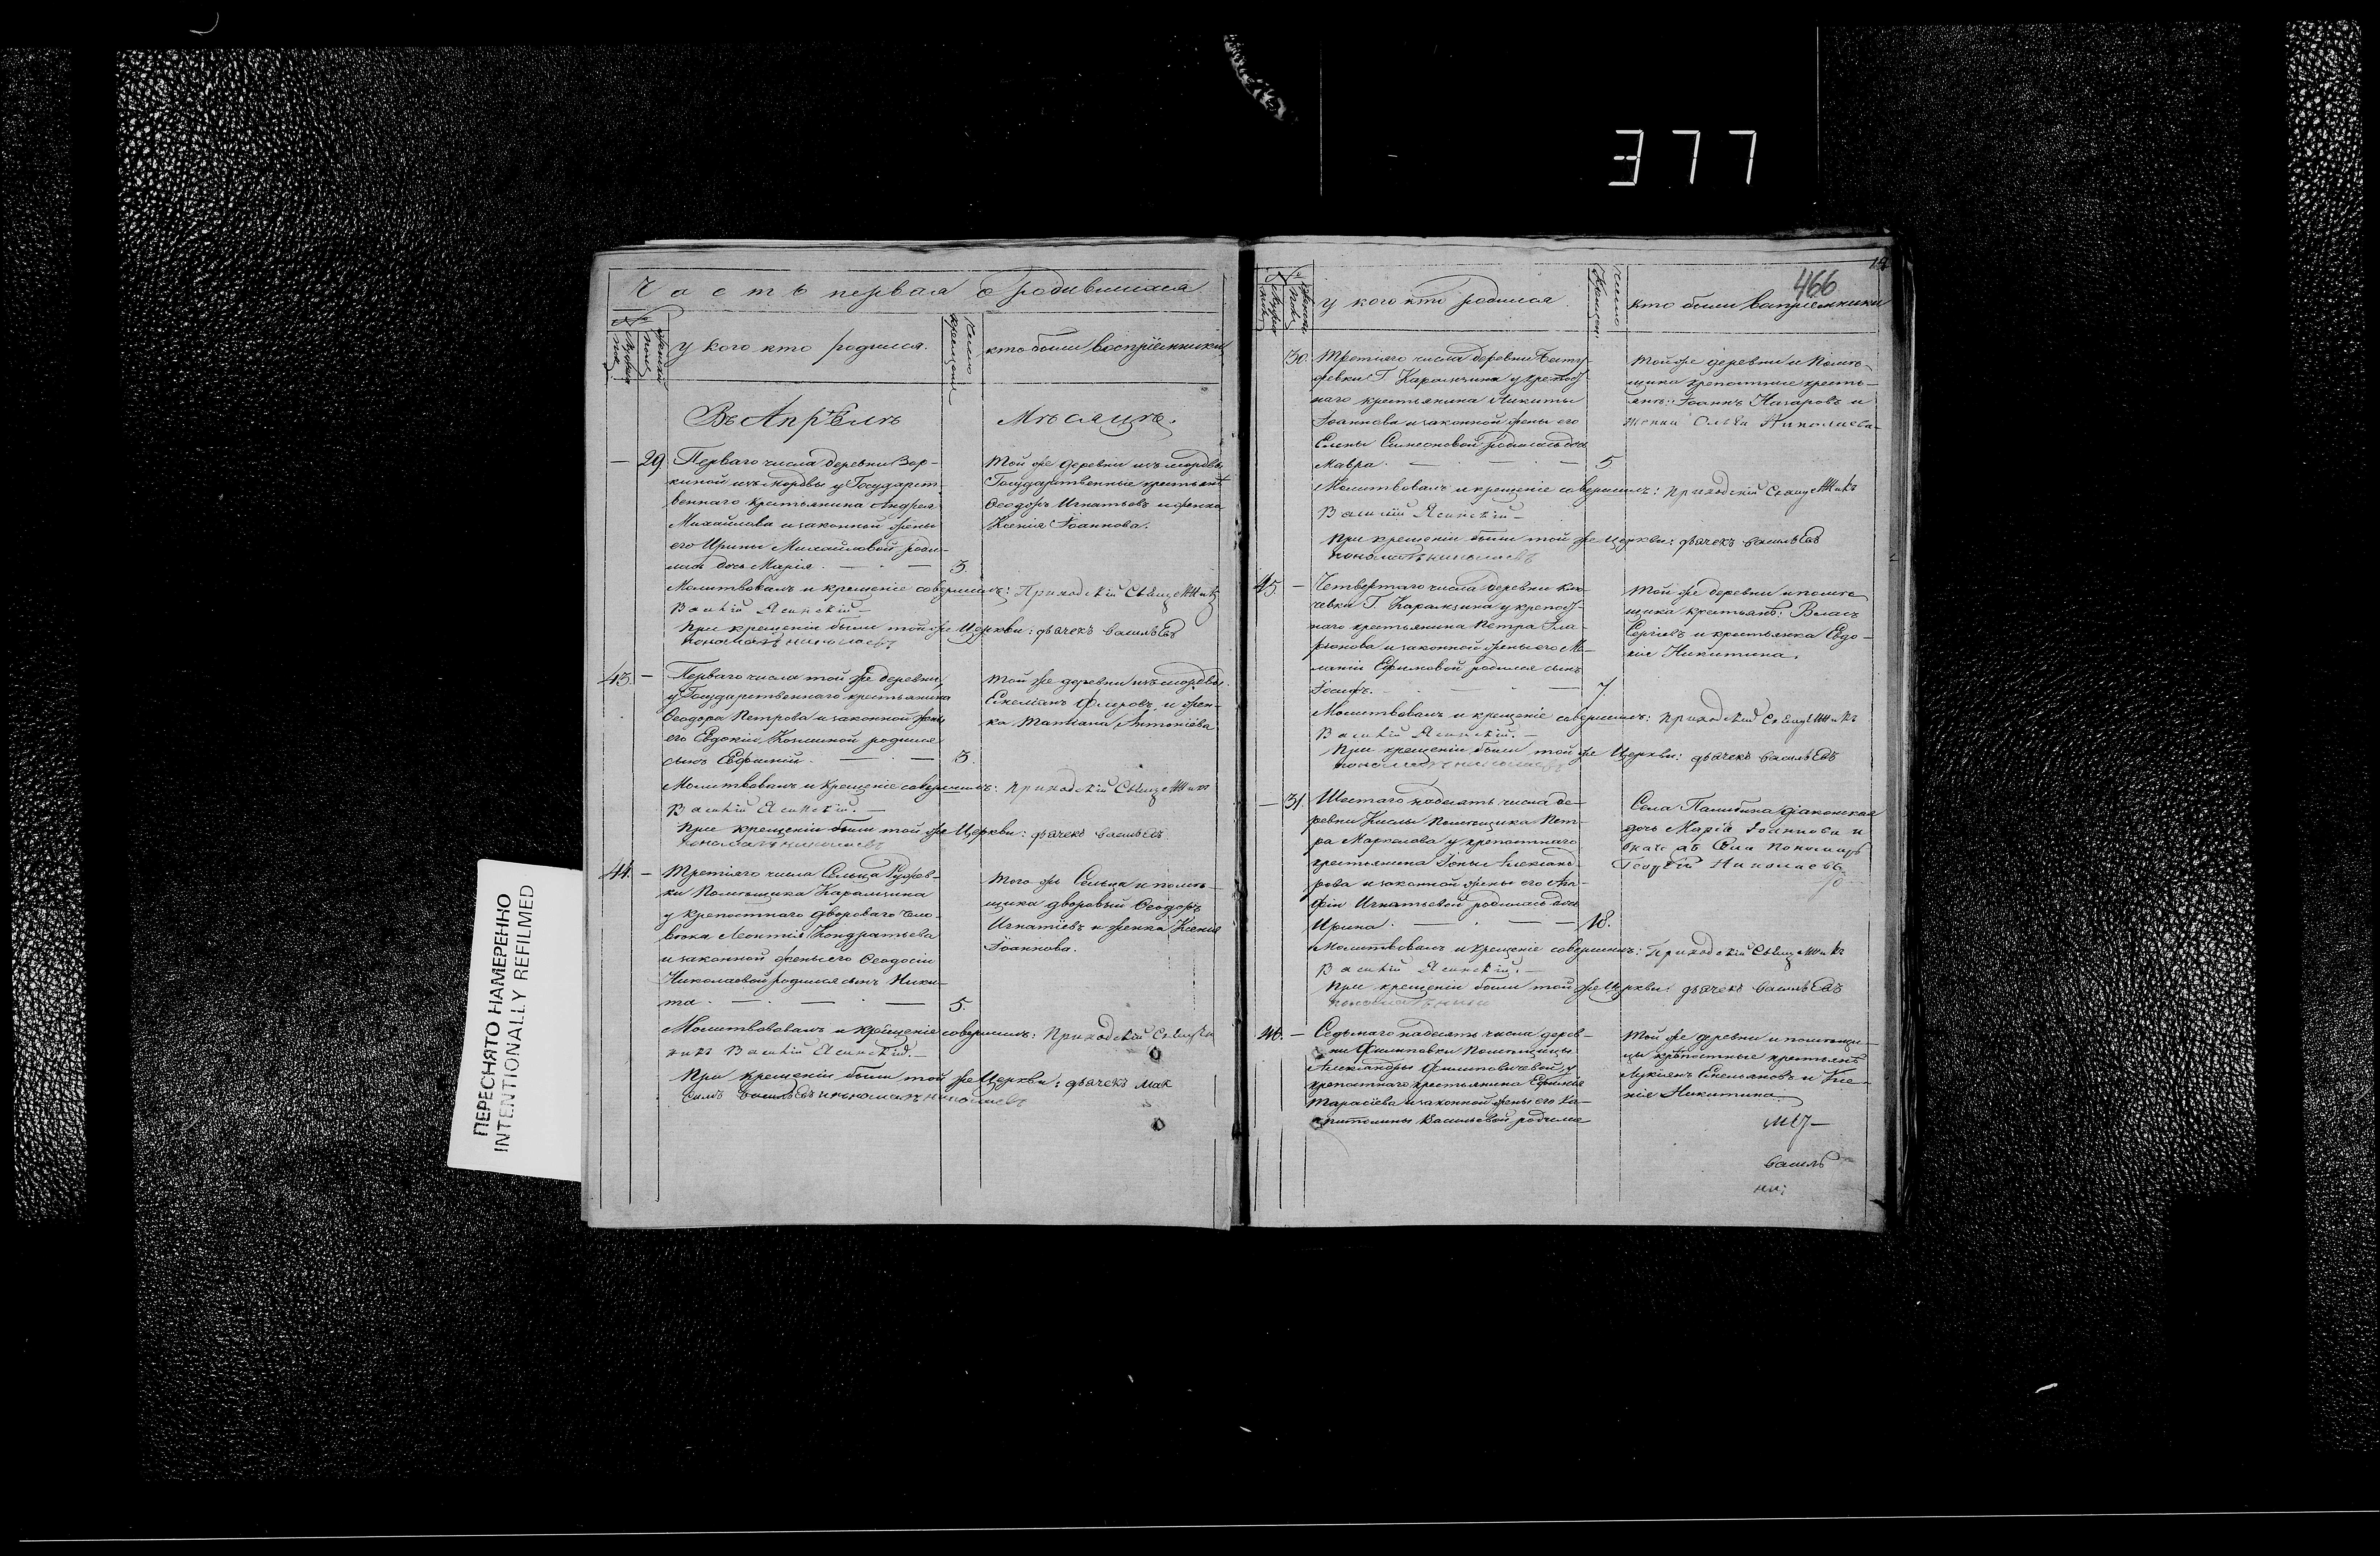 377
ПЕРЕСНЯТО НАМЕРЕННО
INTENTIONALLY REFILMED
Часть первая о родившихся
№
Мужска пол
Женска полъ
у кого кто родился.
Число крещенiя
кто были воспрiемники
Въ Апрѣлѣ Мѣсяцѣ.
— 29
Перваго числа деревни Вор-
киной изъ мордвы у Государст-
веннаго крестьянина Андрея
Михайлова и законной жены
его Ирины Михайловой роди-
лась дочь Марiя. — 3.
Той же деревни изъ мордвы
Государственные крестьян
Ѳеодоръ Игнатьевъ и женка
Ксенiя Iоаннова.
Молитвовалъ и крещенiе совершилъ: Приходскiй Священникъ
Василiй Ясинскiй —
При крещенiи были той же Церкви: дьячекъ васильевъ
пономарь николаевъ
43. —
Перваго числа той же деревни,
у Государственнаго крестьянина
Ѳеодора Петрова и законной жены
его Евдокiи Козминой родился
сынъ Евфимiй. — 3.
Той же деревни изъ мордвы
Емелiянъ Флеровъ, и жен-
ка Татiана Антонiева
Молитвовалъ и крещенiе совершилъ: Приходскiй Священник
Василiй Ясинскiй. —
При крещенiи были той же Церкви: дьячекъ васильевъ
пономарь николаевъ
44. —
Третiяго числа Сельца
ки Помѣщика Карамзина
у крепостнаго двороваго чело-
вѣка Леонтiя Кондратьева
и законной жены его Ѳеодосiи
Николаевой родился сынъ Ники-
та. — 5.
Того же Сельца и помѣ-
щика дворовый Ѳеодоръ
Игнатiевъ и женка Ксенiя
Iоаннова.
Молитвовалъ и крещенiе совершилъ: Приходскiй Священ
никъ Василiй Ясинскiй. —
При крещенiи были той же Церкви: дьячекъ Мак
симъ васильевъ и пономарь николаевъ
466
№
у кого кто родился
Число Крещен:
кто были воспрiемники
30.
Третiяго числа деревни
Г. Карамзина у крепост-
наго крестьянина Никиты
Iоаннова и законной жены его
Елены Симеоновой родилась дочь
Мавра. — 5
Той же деревни и Помѣ-
щика крепостные кресть-
янъ: Iоаннъ Назаровъ и
женка Ольга Николаева
Молитвовалъ и крещенiе совершилъ: Приходскiй Священникъ
Василiй Ясинскiй —
При крещенiи были той же Церкви: дьячекъ васильевъ
пономарь николаевъ
45. —
Четвертаго числа деревни Клю-
чевки Г. Карамзина у крепост-
наго крестьянина Петра Ила-
рiонова и законной жены его Ме-
ланiи Ефимовой родился сынъ
Iосифъ. — 7.
Той же деревни и помѣ
щика крестьянъ: Власъ
Сергiевъ и крестьянка Евдо-
кiя Никитина.
Молитвовалъ и крещенiе совершилъ: Приходскiй Священникъ
Василiй Ясинскiй. —
При крещенiи были той же Церкви: дьячекъ васильевъ
пономарь николаевъ
— 31
Шестаго надесять числа де-
ревни Кислы Помѣщика Пет-
ра Маркелова у крепостнаго
крестьянина Iоны Александ-
рова и законной жены его Ага-
фiи Игнатьевой родилась дочь
Ирина. — 18.
Села дiаконская
дочь Марiя Iоаннова и
села Пономарь
Георгiй Николаевъ
Молитвовалъ и крещенiе совершилъ: Приходскiй Священникъ
Василiй Ясинскiй. —
При крещенiи были той же Церкви: дьячекъ васильевъ
пономарь нико
46. —
Седьмаго надесять числа дерев-
ни Филиповки Помѣщицы
Александры Филиповичевой, у
крепостнаго крестьянина Ефимiя
Тарасiева и законной жены его Ка-
питолины Васильевой родился
Той же деревни и помѣщи-
цы крѣпостные крестьянъ
Лукiянъ Емельяновъ и Ксе-
нiя Никитина.
василь
ни: